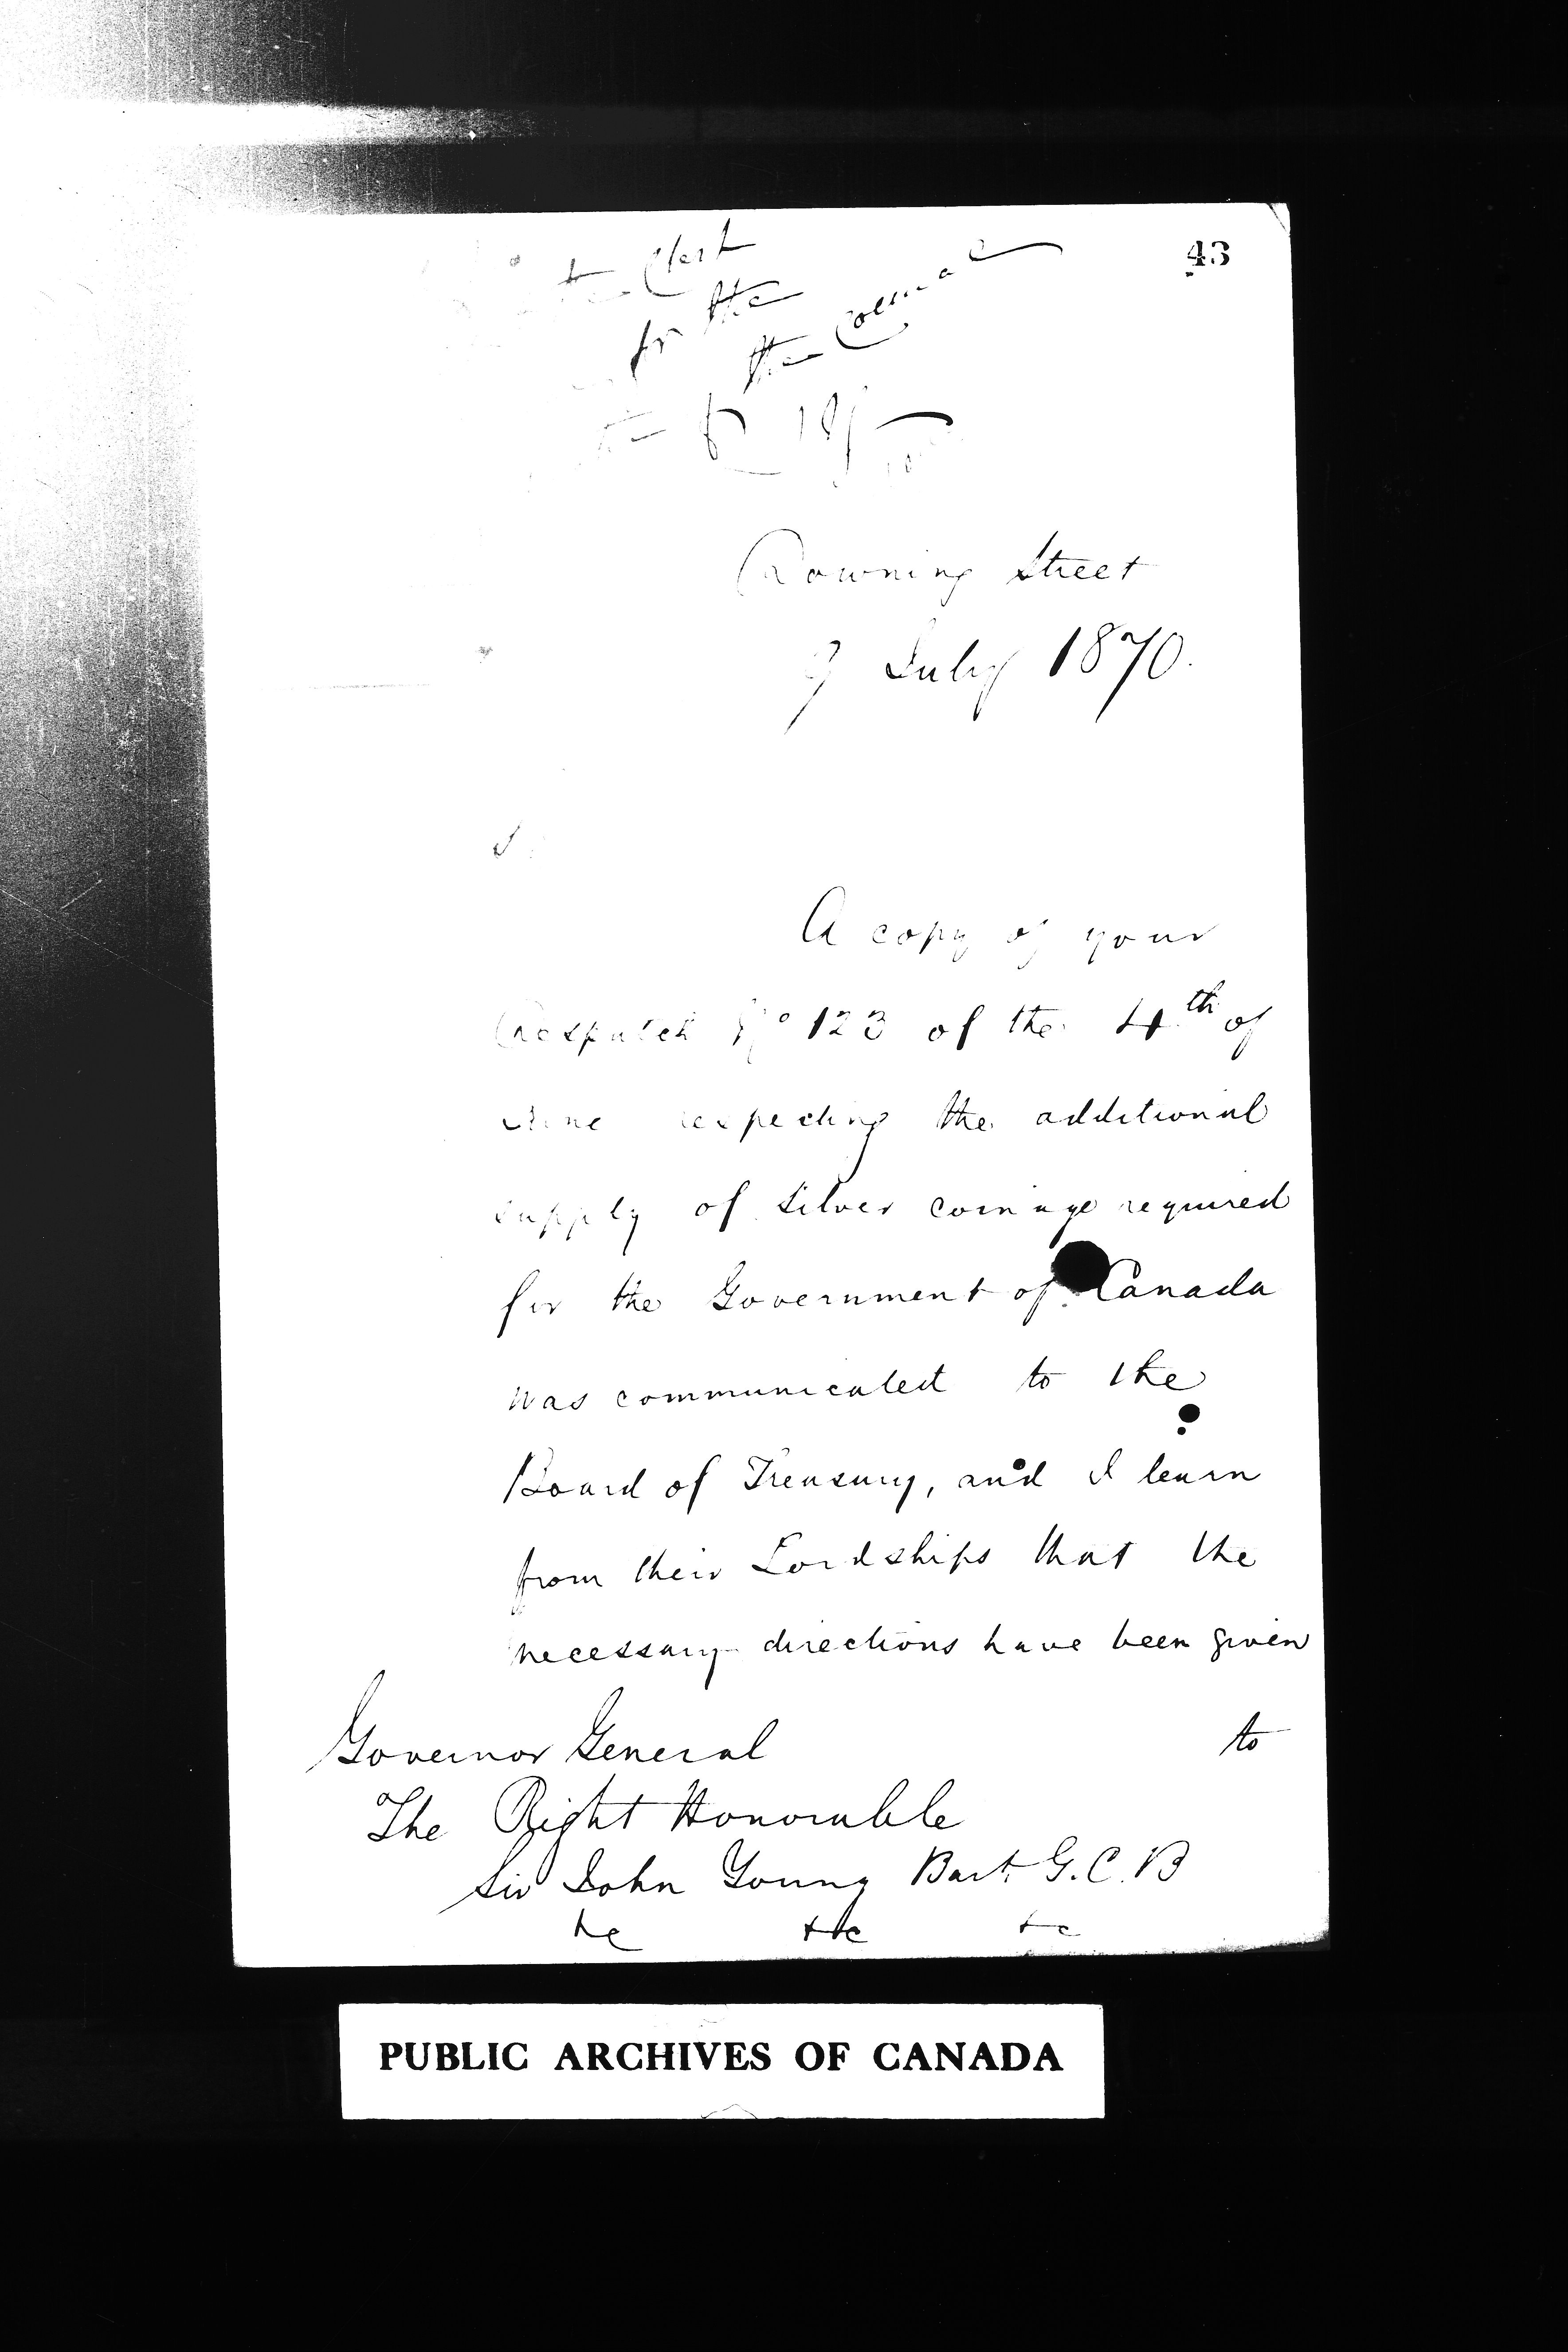 43
the Clerk
for the
the
Downing Street
9 July 1870.
A copy of your
Despatch No 123 of the 4th of
June respecting the additional
supply of silver coinage required
for the Government of Canada
was communicated to the
Board of Treasury, and I learn
from their Lordships that the
necessary directions have been given
to
Governor General
The Right Honorable
Sir John Young Bart. G.C.B
&c &c &c
PUBLIC ARCHIVES OF CANADA